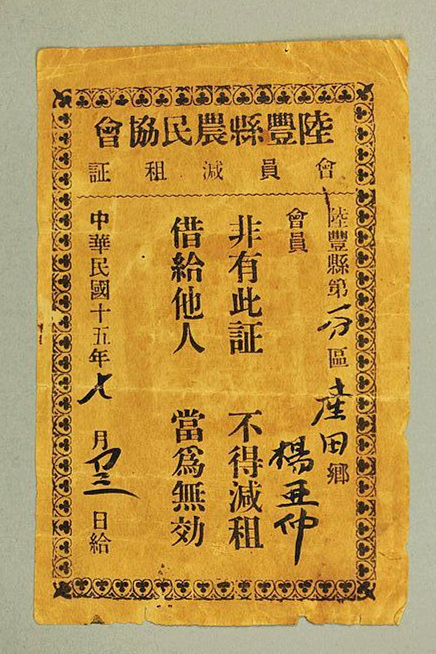 陸豐縣農民協會
會員減租証
陸豐縣第一區田鄉
會員楊亚仲
非有此証 不得減租
借給他人 當為無効
中華民國十五年七月日給